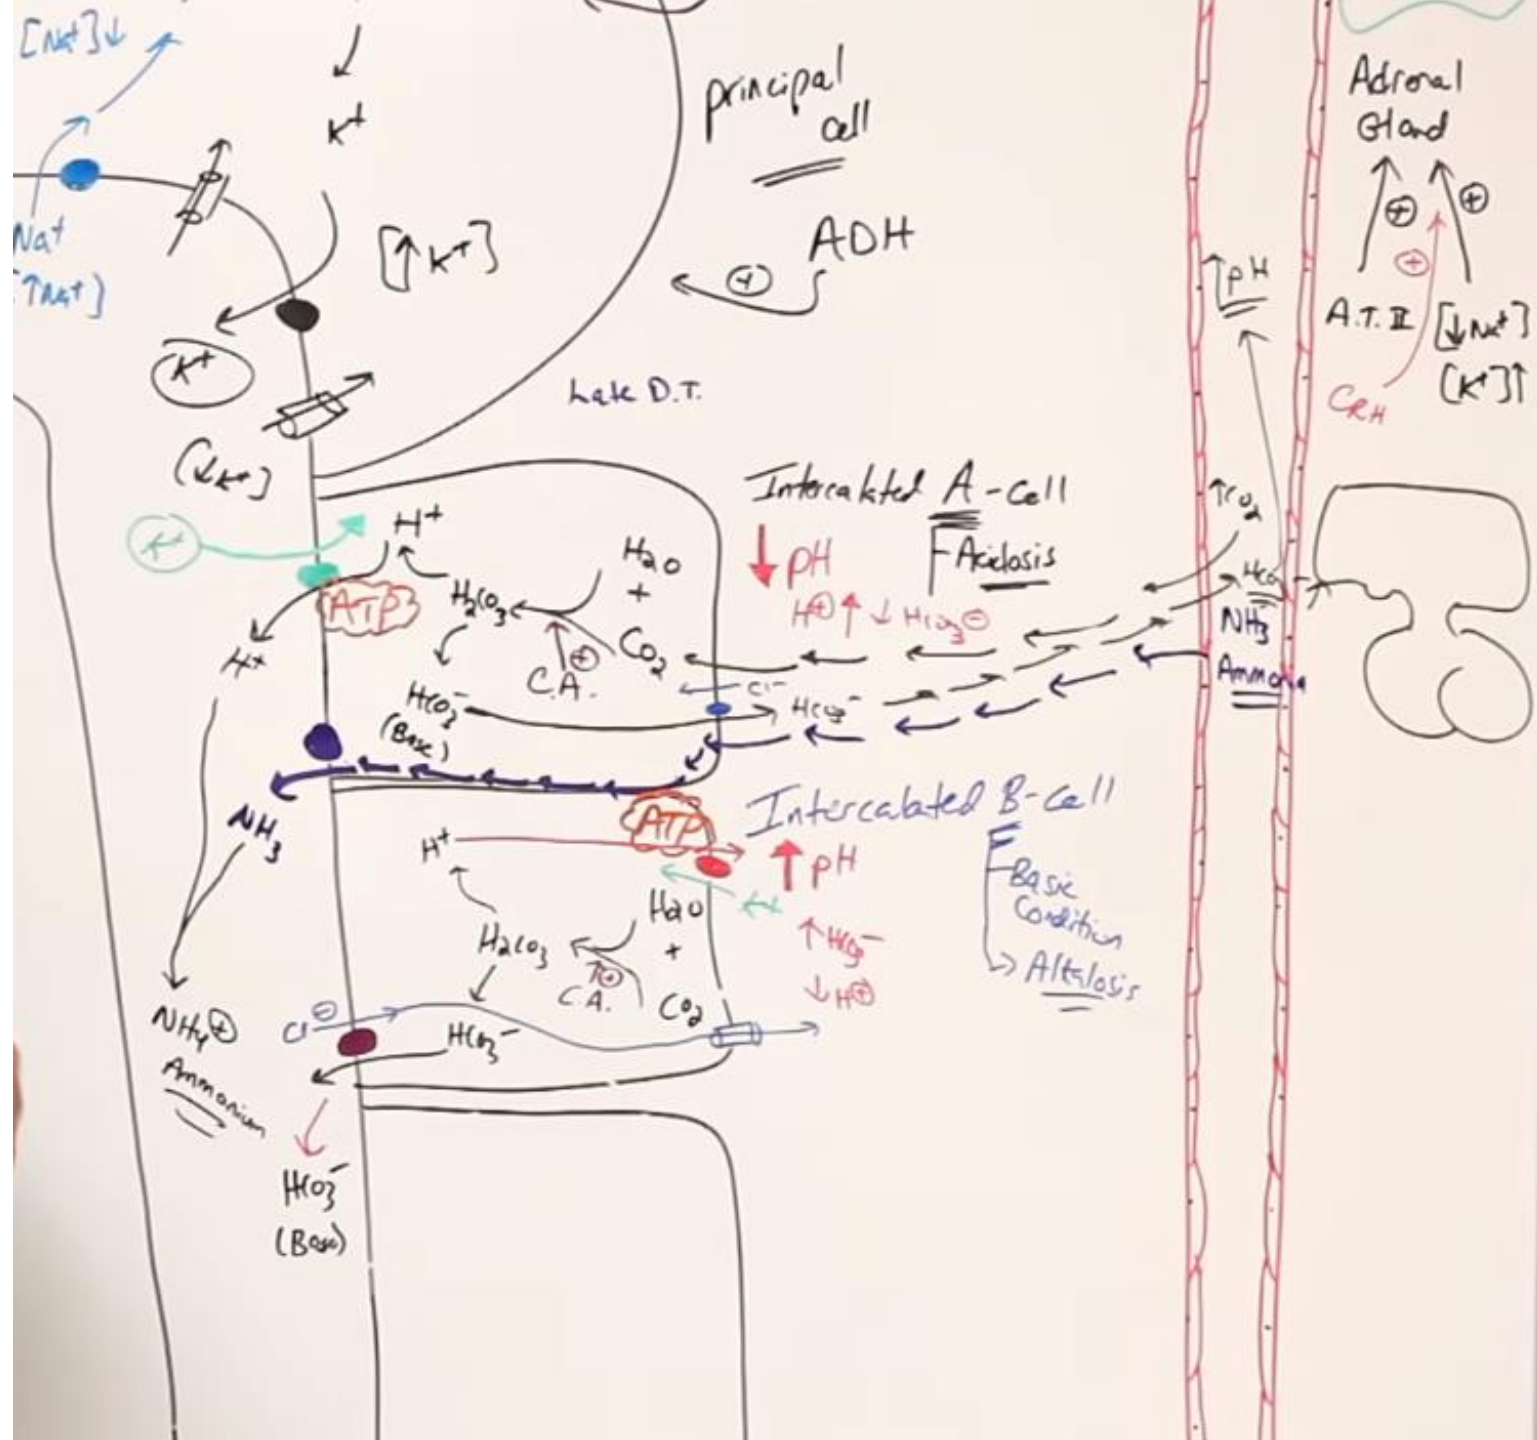 [Na+]↓
K+
principal
cell
Adrenal
Gland
Na+
[↑Na+]
[↑K+]
ADH
⊕
⊕
⊕
⊕
↑pH
A.T. II
[↓Na+]
[K+]↑
CRH
K+
Late D.T.
[↓K+]
Intercalated A-Cell
Acidosis
↓ pH
H⊕↑ ↓HCO3⊖
K+
H+
H2O
+
CO2
H2CO3
ATP
C.A.
⊕
H+
HCO3-
(Base)
Cl-
HCO3-
↑CO2
HCO3-
NH3
Ammonia
NH3
ATP
Intercalated B-Cell
H+
↑ pH
Basic
Condition
Alkalosis
K+
H2O
+
CO2
H2CO3
C.A.
⊕
↑HCO3-
↓H⊕
NH4⊕
Ammonium
Cl⊖
HCO3-
HCO3-
(Base)